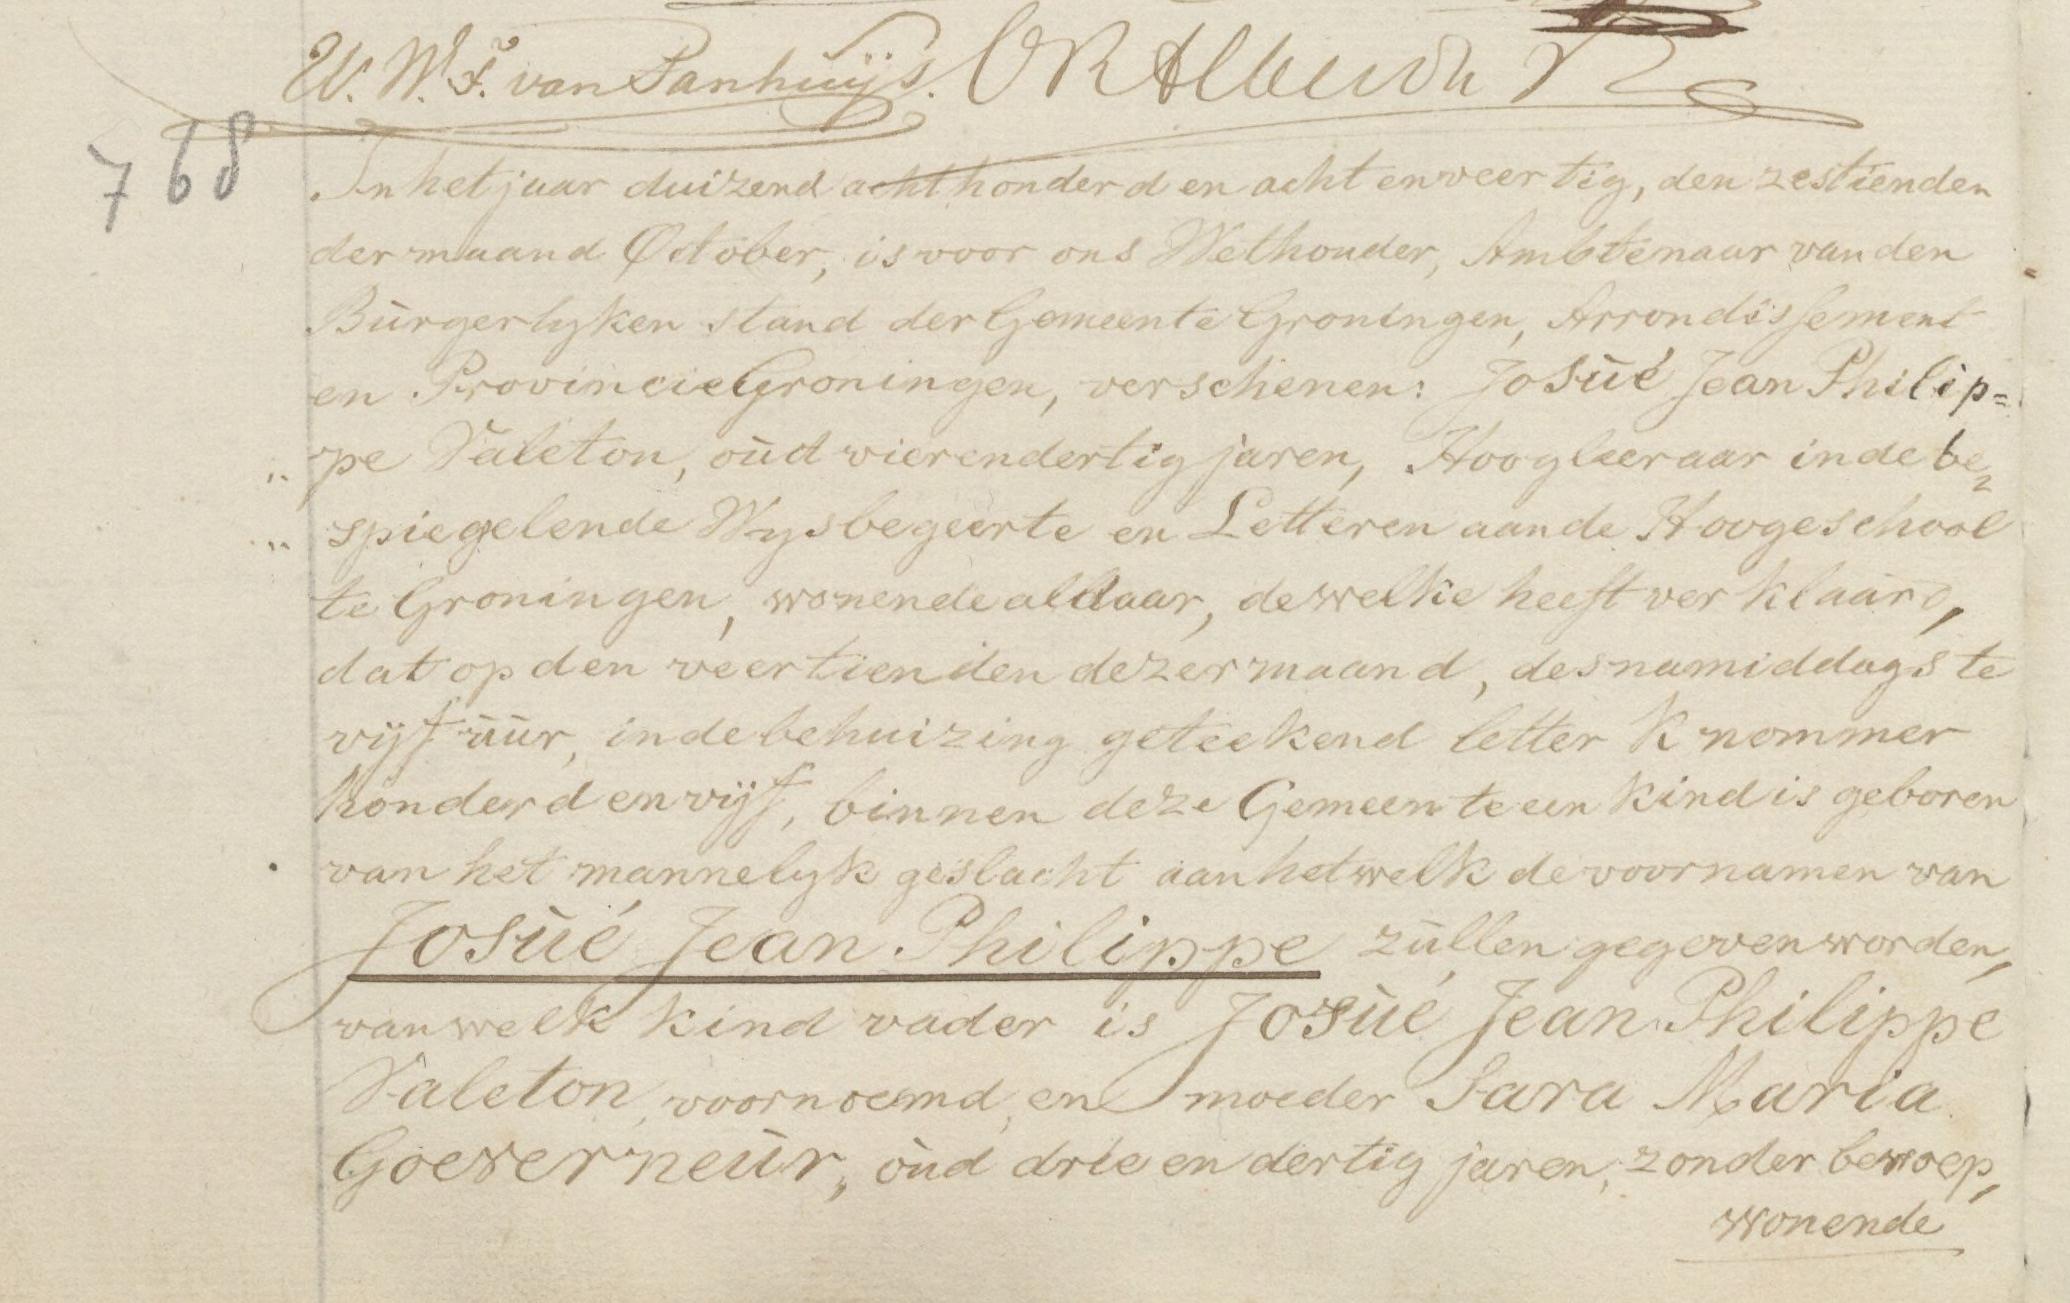 W. W. F. van Panhuijs.
768
In het jaar duizend acht honderd en acht en veertig, den zestienden
der maand October, is voor ons Wethouder, Ambtenaar van den
Burgerlyken stand der Gemeente Groningen, Arrondissement
en Provincie Groningen, verschenen: Josué Jean Philip=
" pe Valeton, oud vierendertig jaren, Hoogleeraar in de be=
" spiegelende Wysbegeerte en Letteren aan de Hoogeschool
te Groningen, wonende aldaar, dewelke heeft verklaard,
dat op den veertienden dezer maand, des namiddags te
vijf uur, in de behuizing geteekend letter K nommer
honderd en vijf, binnen deze Gemeente een kind is geboren
van het mannelyk geslacht aan hetwelk de voornamen van
Josué Jean Philippe zullen gegeven worden,
van welk kind vader is Josué Jean Philippe
Valeton, voornoemd, en moeder Sara Maria
Goeverneur, oud drie en dertig jaren, zonder beroep,
wonende